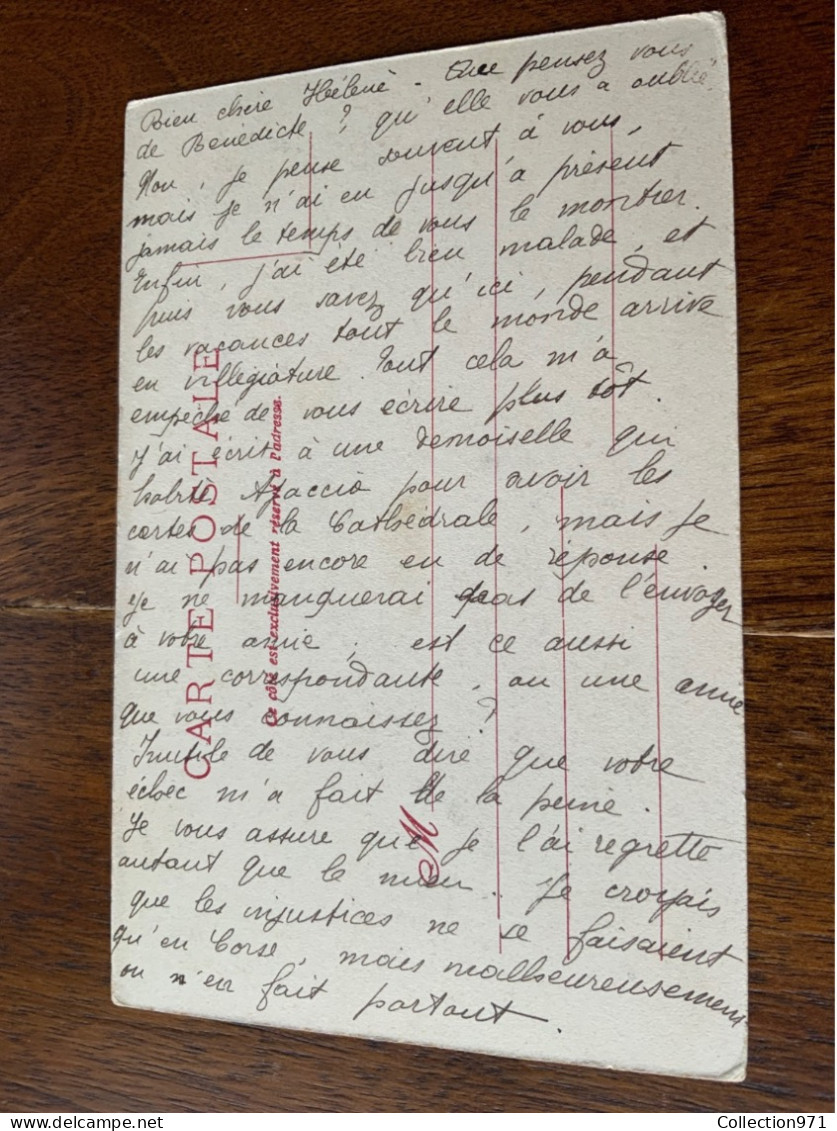 Bien chère Hélène - Que pensez vous
de Bénédicte ? qu'elle vous a oublié
Non, je pense souvent à vous,
mais je n'ai eu jusqu'à présent
jamais le temps de vous le montrer.
Enfin, j'ai été bien malade, et
puis vous savez qu'ici, pendant
les vacances tout le monde arrive
en villégiature. Tout cela m'a
empêché de vous écrire plus tôt.
J'ai écrit à une demoiselle qui
habite Ajaccio pour avoir les
cartes de la Cathédrale, mais je
n'ai pas encore eu de réponse.
Je ne manquerai pas de l'envoyer
à votre amie ; est ce aussi
une correspondante, ou une amie
que vous connaissez ?
Inutile de vous dire que votre
échec m'a fait de la peine.
Je vous assure que je l'ai regretté
autant que le mien. Je croyais
que les injustices ne se faisaient
qu'en Corse, mais malheureusement
on n'en fait partout.
CARTE POSTALE
Ce côté est exclusivement réservé à l'adresse.
M
Collection971